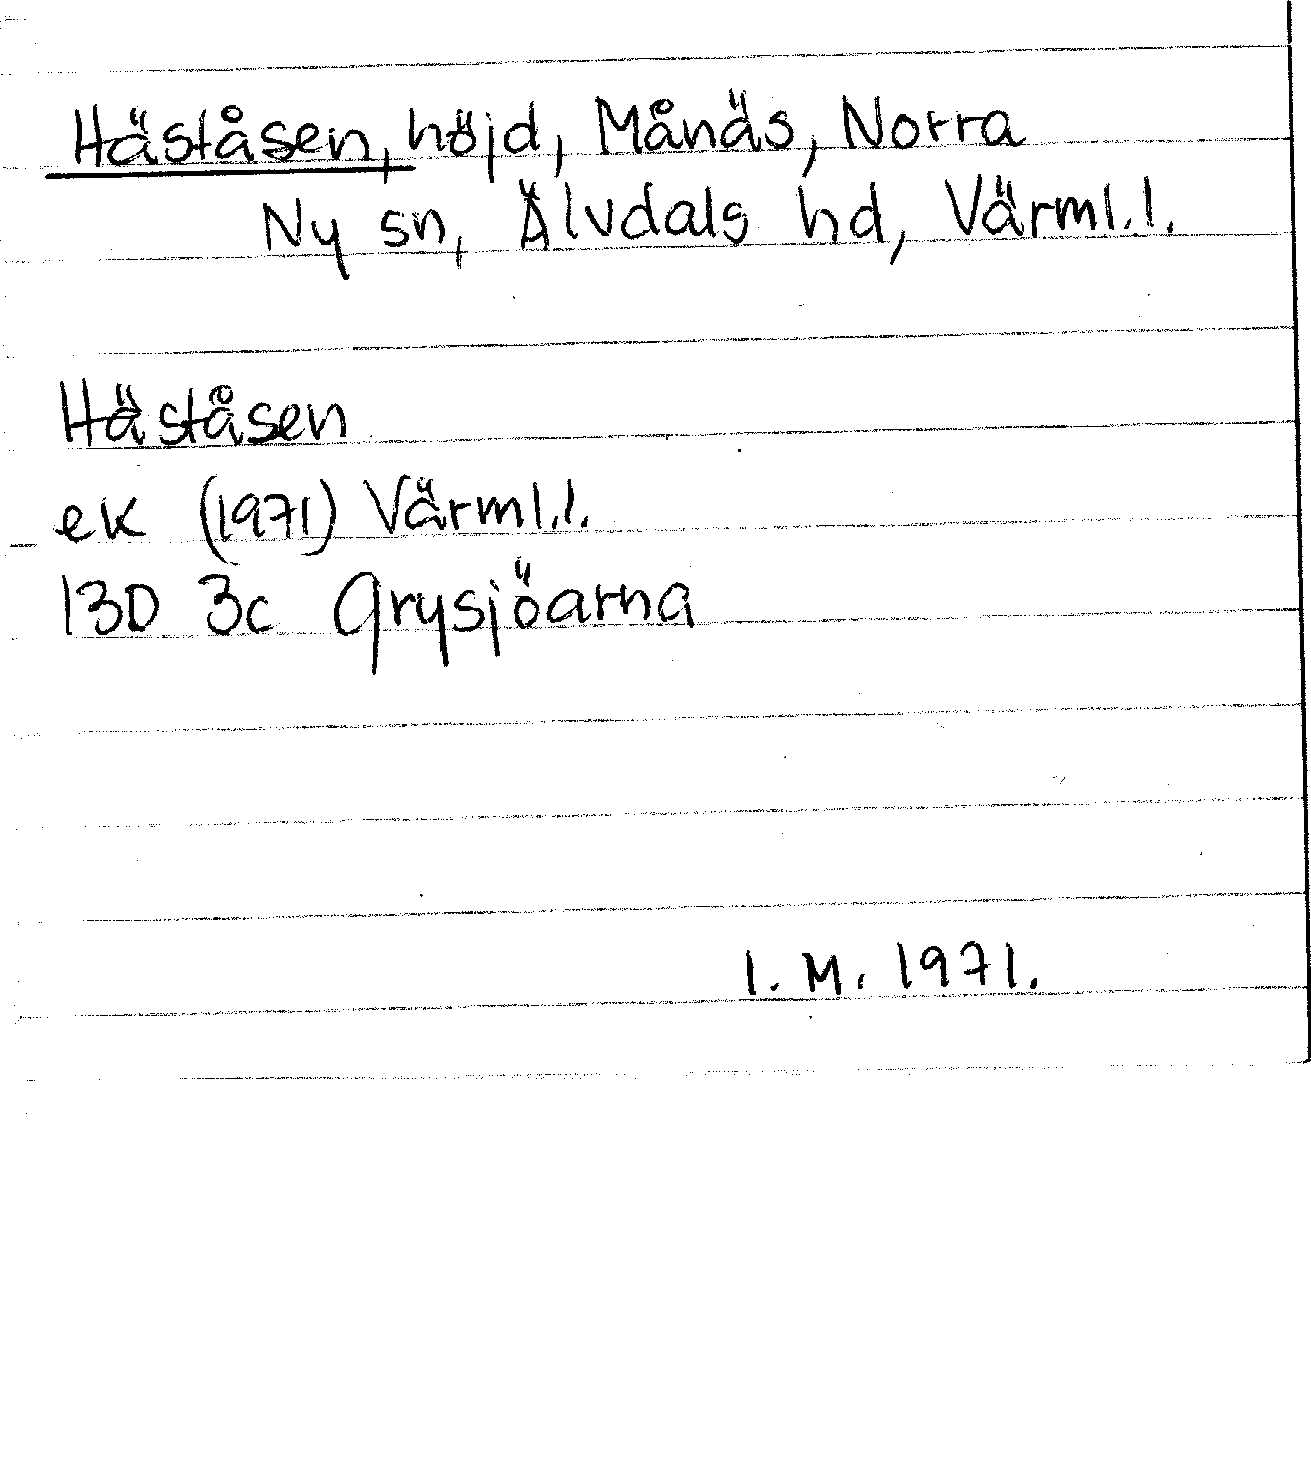 Häståsen, höjd, Månäs, Norra
Ny sn, Älvdals hd, Värml.l.
Häståsen
ek (1971) Värml.l.
13D 3c Grysjöarna
I. M. 1971.